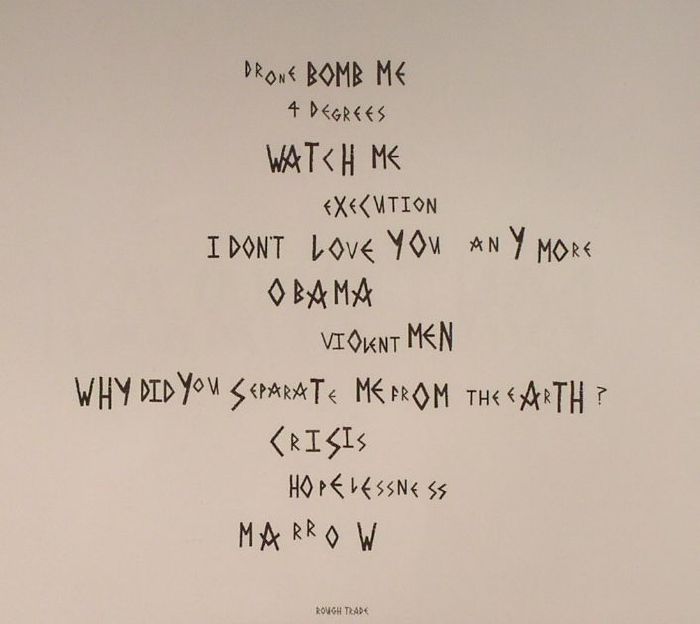 DRONE BOMB ME
4 DEGREES
WATCH ME
EXECUTION
I DON'T LOVE YOU ANY MORE
OBAMA
VIOLENT MEN
WHY DID YOU SEPARATE ME FROM THE EARTH?
CRISIS
HOPELESSNESS
MARROW
ROUGH TRADE